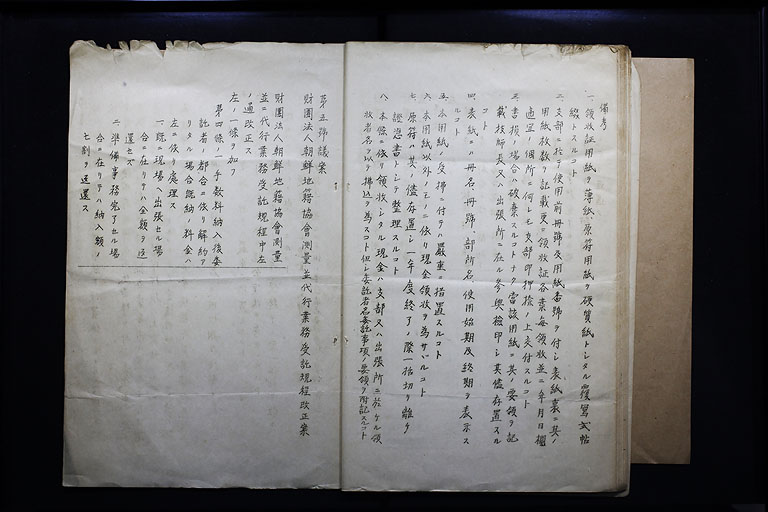 備考
一、領收証用紙ヲ薄紙、原符用紙ヲ硬質紙トシタル複寫式帖
綴トスルコト
二、支部ニ於テ使用前冊號及用紙番號ヲ付シ表紙裏ニ其ノ
用紙枚数ヲ記載更ニ領收証各葉毎領收並ニ年月日欄
適宜ノ個所ニ何レモ支部印押捺ノ上交付スルコト
三、書損ノ場合ハ破棄スルコトナク當該用紙ニ其ノ要領ヲ記
載技師長又ハ出張所ニ在ル参與檢印シ其儘存置スル
コト
四、表紙ニハ冊名、冊號、部所名、使用始期及終期ヲ表示ス
ルコト
五、本用紙ノ受拂ニ付テハ嚴重ニ措置スルコト
六、本用紙以外ノモノニ依リ現金領收ヲ為サヾルコト
七、原符ハ其ノ儘存置シ一年度終了ノ際一括切リ離シ
證憑書トシテ整理スルコト
八、本條ニ依リ領收シタル現金ハ支部又ハ出張所ニ於ケル領
收者名ヲ以テ拂込ヲ為スコト但シ委託者名委託事項ノ要領ヲ附記スルコト
第五號議案
財團法人朝鮮地籍協會測量並代行業務受託規程改正案
財團法人朝鮮地籍協會測量
並ニ代行業務受託規程中左
ノ通改正ス
左ノ一條ヲ加フ
第四條ノ一 手数料納入後委
託者ノ都合ニ依リ解約ヲ
リタル場合既納ノ料金ハ
左ニ依リ處理ス
一、既ニ現場ヘ出張セル場
合ニ在リテハ全額ヲ返
還セズ
二、準備事務完了セル場
合ニ在リテハ納入額ノ
七割ヲ返還ス